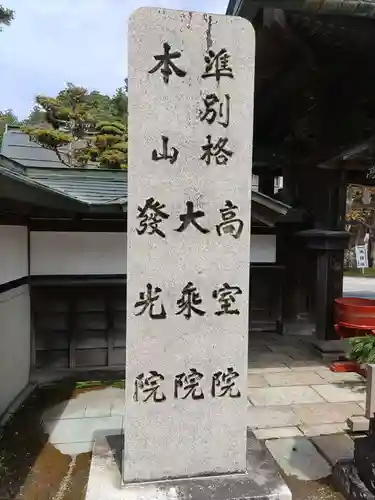 準別格
本山
高室院
大乘院
發光院